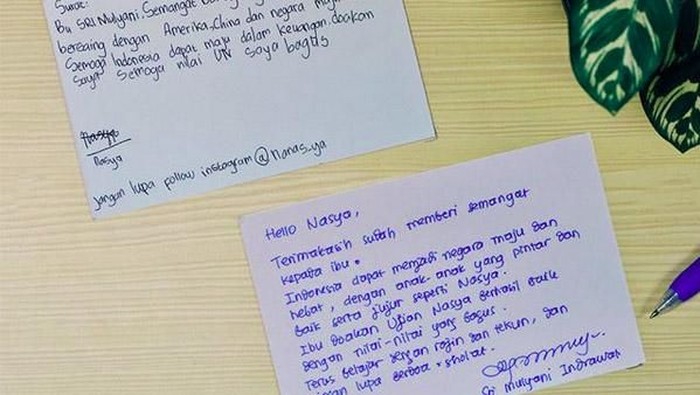 Surat:
Bu SRI Mulyani, Semangat
bersaing dengan Amerika, China dan negara maju
Semoga Indonesia dapat maju dalam keuangan, doakan
saya semoga nilai UN saya bagus
Nasya
Nasya
Jangan lupa follow instagram @Nanas_ya
Hello Nasya,
Terimakasih sudah memberi semangat
kepada ibu.
Indonesia dapat menjadi negara maju dan
hebat, dengan anak-anak yang pintar dan
baik serta jujur seperti Nasya.
Ibu doakan Ujian Nasya berhasil baik
dengan nilai-nilai yang bagus.
Terus belajar dengan rajin dan tekun, dan
jangan lupa berdoa + sholat.
Sri Mulyani Indrawati